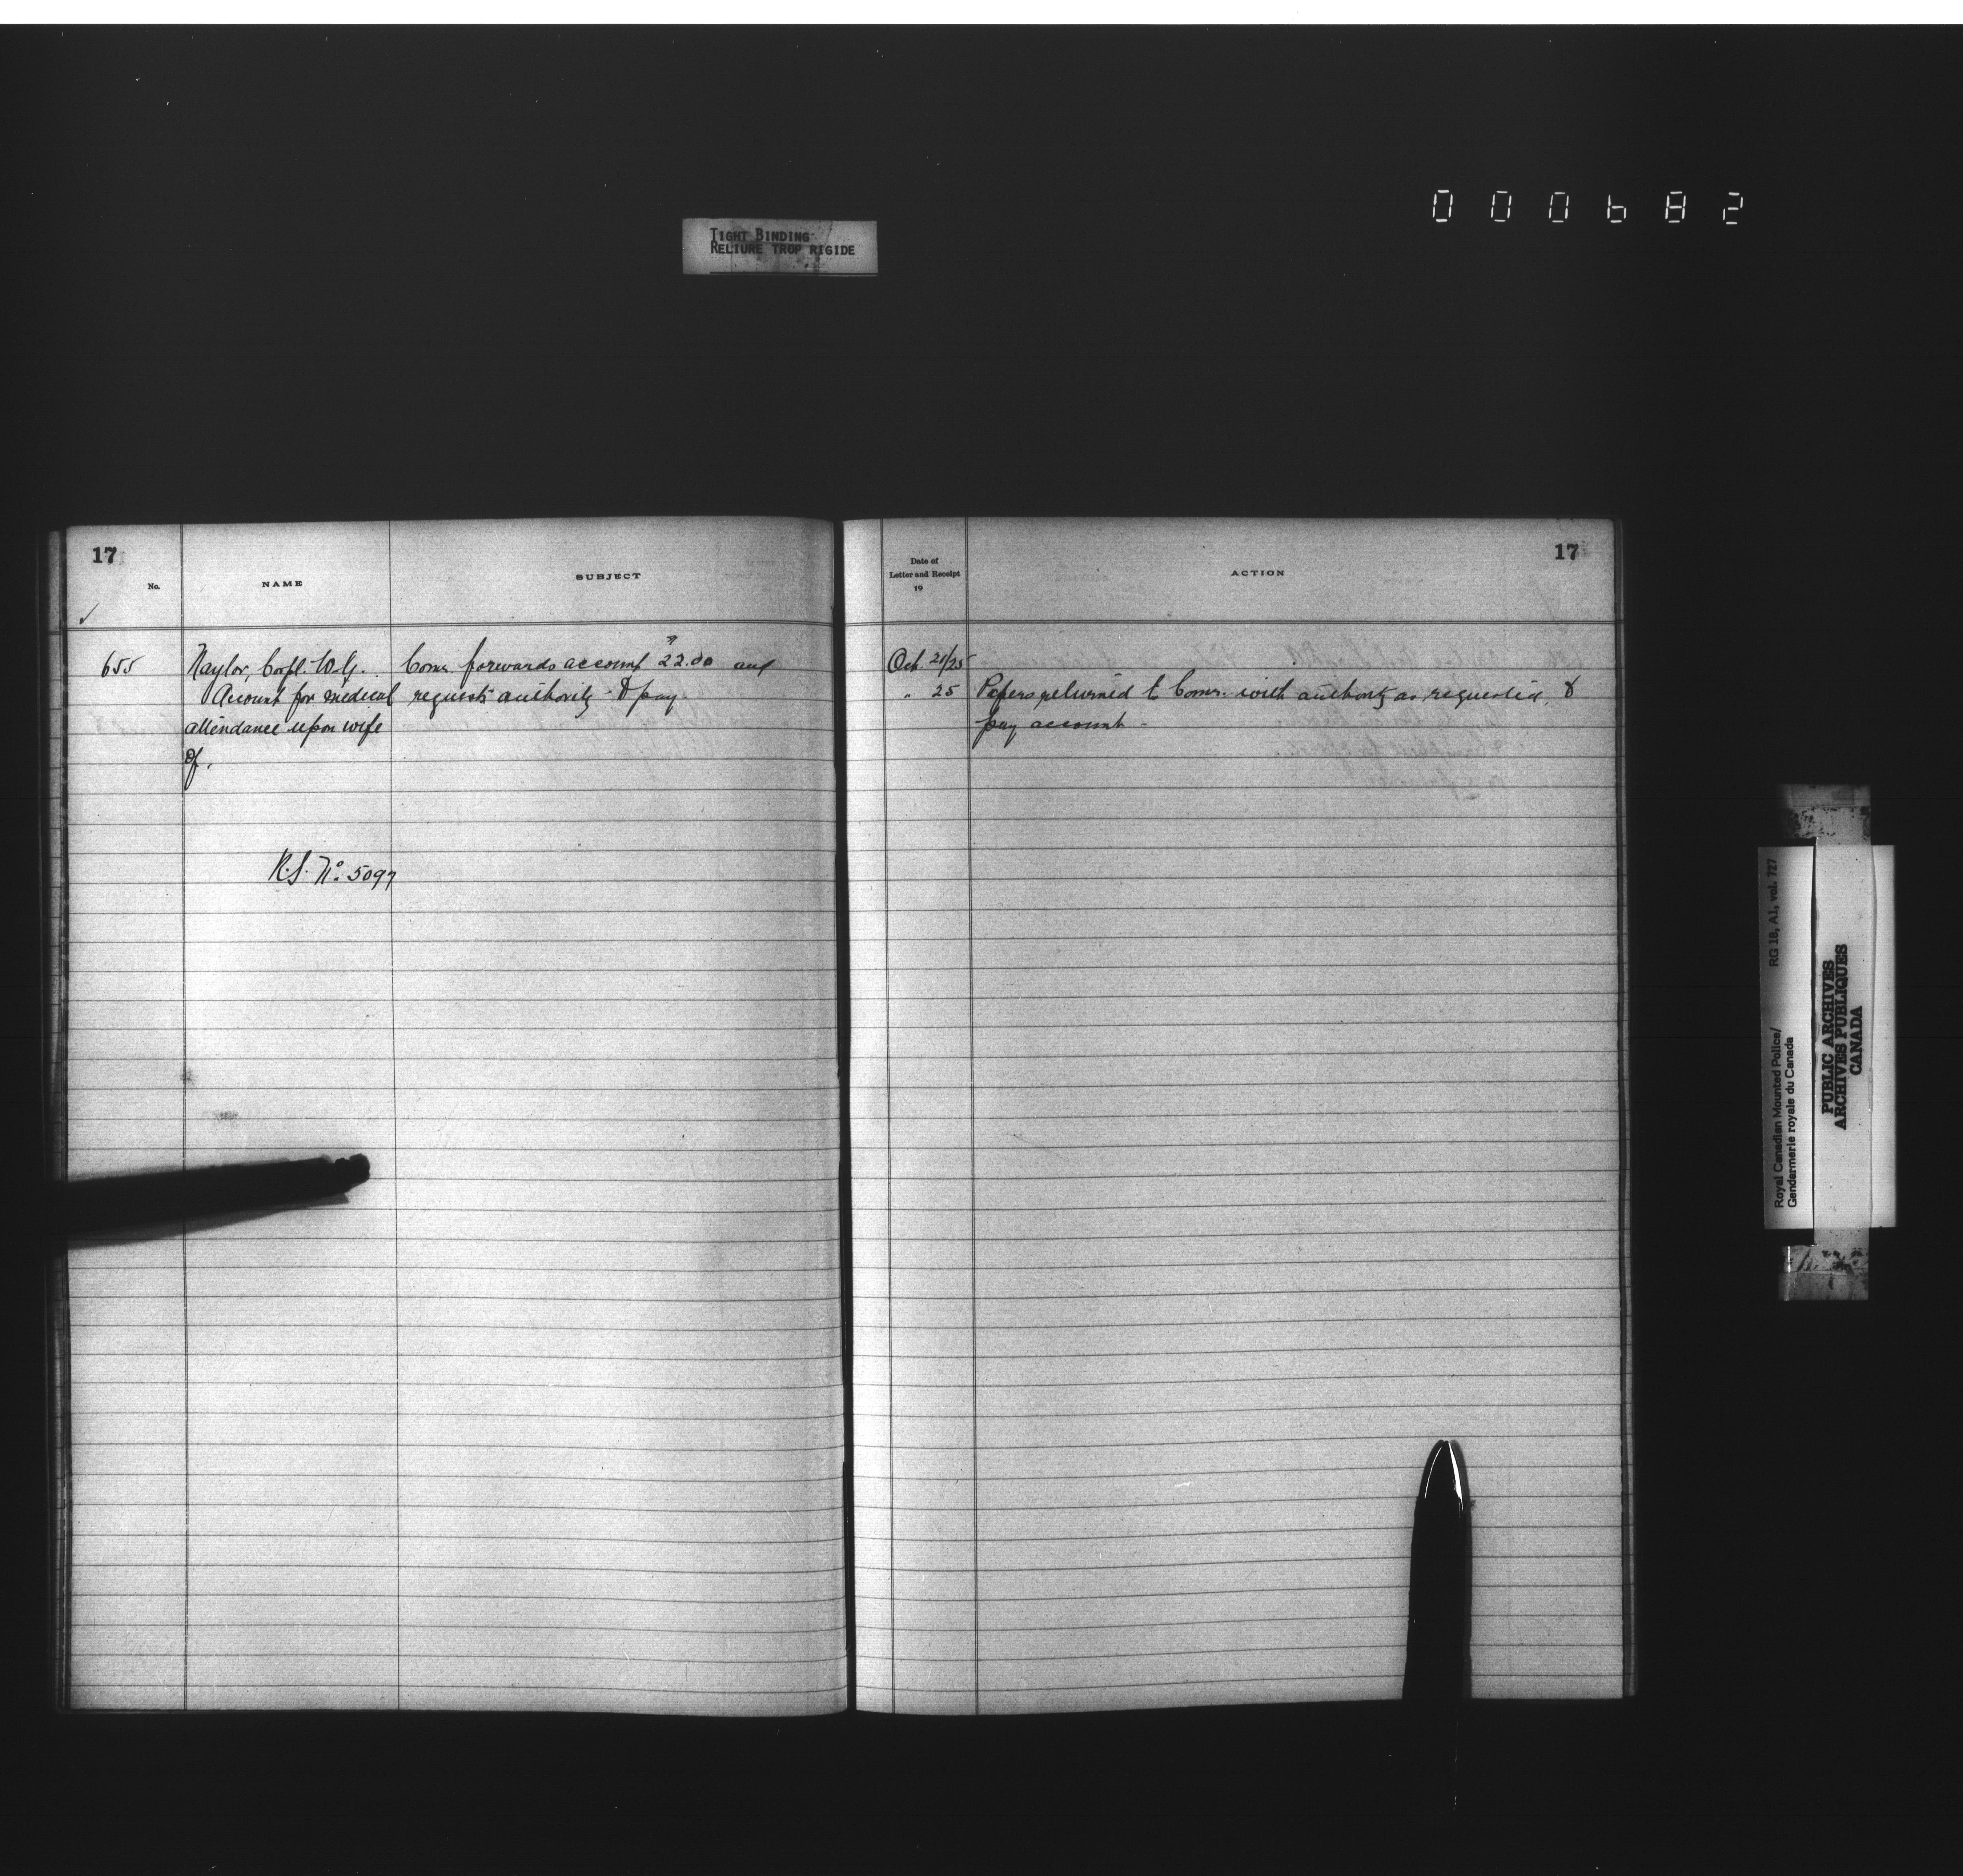 000682
TIGHT BINDING
RELIURE TROP RIGIDE
17
No.
NAME
SUBJECT
655
Naylor, Corpl. W.G.
Account for medical
attendance upon wife
of.
R.S. No. 5097
Comr. forwards account 22.00 and
requests authority to pay
17
Date of
Letter and Receipt
19
ACTION
Oct. 21/25
" 25
Papers returned to Comr. with authority as requested, to
pay account -
Royal Canadian Mounted Police/
Gendarmerie royale du Canada
RG 18, A1, vol. 727
PUBLIC ARCHIVES
ARCHIVES PUBLIQUES
CANADA